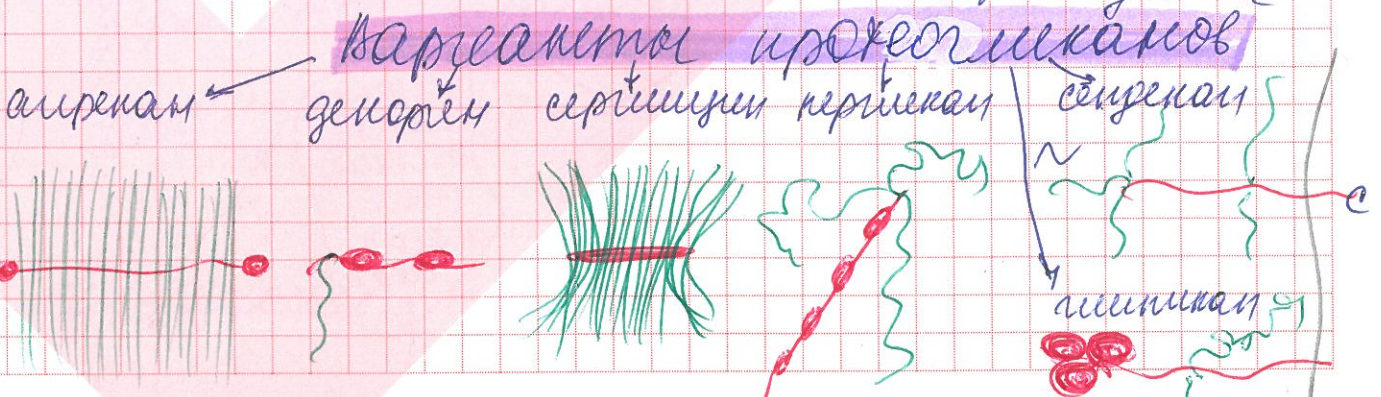 Варианты протеогликанов
агрекан декорин серглицин перлекан синдекан
N
C
глипикан